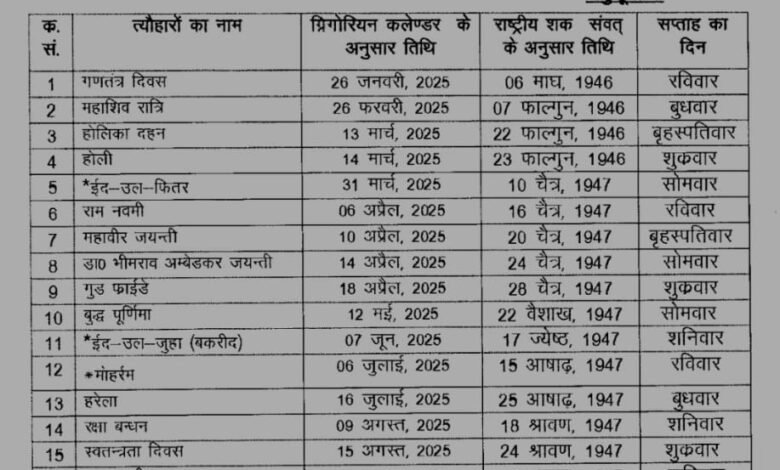 क. सं. त्यौहारों का नाम ग्रिगोरियन कलेण्डर के अनुसार तिथि राष्ट्रीय शक संवत् के अनुसार तिथि सप्ताह का दिन
1 गणतंत्र दिवस 26 जनवरी, 2025 06 माघ, 1946 रविवार
2 महाशिव रात्रि 26 फरवरी, 2025 07 फाल्गुन, 1946 बुधवार
3 होलिका दहन 13 मार्च, 2025 22 फाल्गुन, 1946 बृहस्पतिवार
4 होली 14 मार्च, 2025 23 फाल्गुन, 1946 शुकवार
5 *ईद-उल-फितर 31 मार्च, 2025 10 चैत्र, 1947 सोमवार
6 राम नवमी 06 अप्रैल, 2025 16 चैत्र, 1947 रविवार
7 महावीर जयन्ती 10 अप्रैल, 2025 20 चैत्र, 1947 बृहस्पतिवार
8 डा0 भीमराव अम्बेडकर जयन्ती 14 अप्रैल, 2025 24 चैत्र, 1947 सोमवार
9 गुड फ्राईडे 18 अप्रैल, 2025 28 चैत्र, 1947 शुकवार
10 बुद्ध पूर्णिमा 12 मई, 2025 22 वैशाख, 1947 सोमवार
11 *ईद-उल-जुहा (बकरीद) 07 जून, 2025 17 ज्येष्ठ, 1947 शनिवार
12 *मोहर्रम 06 जुलाई, 2025 15 आषाढ़, 1947 रविवार
13 हरेला 16 जुलाई, 2025 25 आषाढ़, 1947 बुधवार
14 रक्षा बन्धन 09 अगस्त, 2025 18 श्रावण, 1947 शनिवार
15 स्वतन्त्रता दिवस 15 अगस्त, 2025 24 श्रावण, 1947 शुकवार